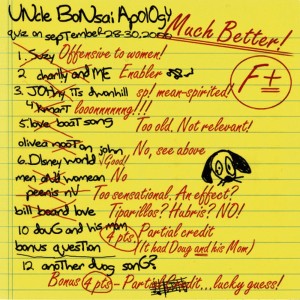 UNcle BoNsai ApolOgy
quiz on september 28-30, 2006
Much Better!
F+
1. Suzy Offensive to women!
2. charlly and ME Enabler
3. JOhny its downhill sp! mean-spirited!
4. kmart looonnnnnng!!!
5. love boat song Too old. Not relevant!
olivea nooton john No, see above
6. Disney world √Good!
men and women No
peenis nV Too sensational. An effect?
bill board love Tiparillos? Hubris? NO!
10 douG and his mom 4 pts. Partial credit
bonus question (It had Doug and his Mom)
12. another duog sonG?
Bonus 4 pts - Partial ... lucky guess!